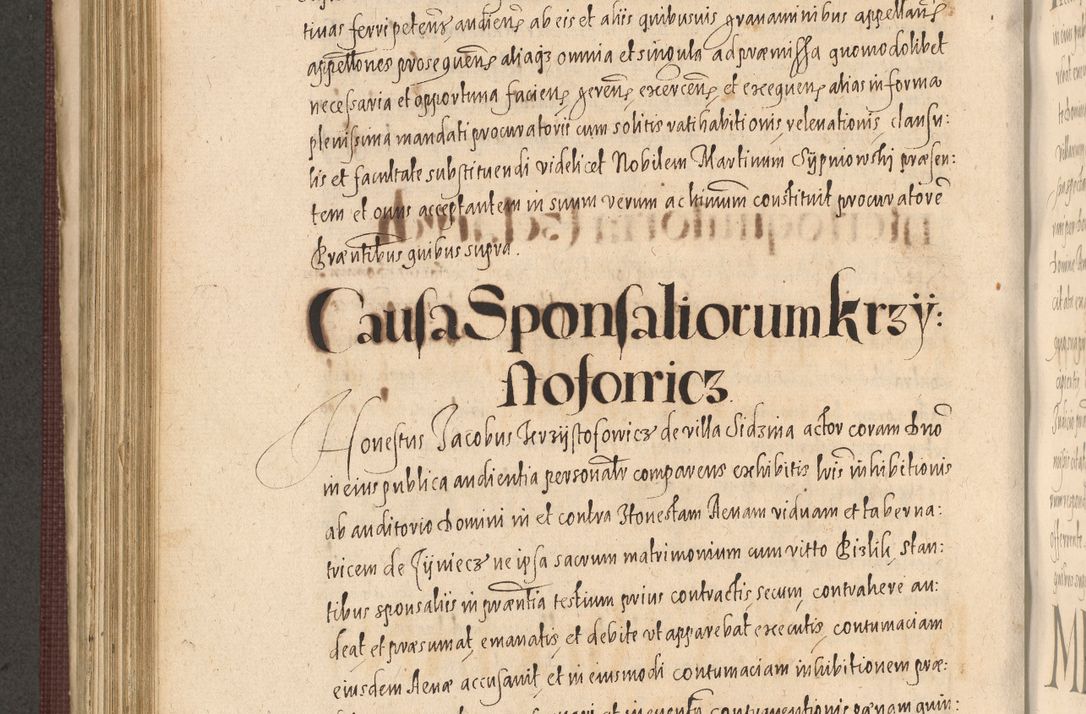 tivas ferri petenꝭ, audienꝭ ab eis et aliis quibusvis gravaminibus appellanꝭ
appellones prosequenꝭ aliaqꝫ omnia et singula ad præmissa quomodolibet
necessaria et opportuna facienꝭ gerenꝭ, exercenꝭ, et exequenꝭ alias in forma
plenissima mandati procuratorii cum solitis ratihabitionis, relevationis, clausu:
lis et facultate substituendi videlicet Nobilem Martinum Sÿpniowski præsen:
tem et onus acceptantem in suum verum ac ltimum constituit procuratorē
Præntibus quibus supra.
Causa Sponsaliorum Krzÿ:
stoforricz
Honestus Jacobus Krzÿstofowicz de villa Sidzina actor coram Dno
in eius publica audientia personalr comparens exhibitis lris inhibitionis
ab auditorio Domini in et contra Honestam Aenam viduam et taberna:
tricem de Tÿniecz ne ipsa sacrum matrimonium cum vitto Bizlik, stan:
tibus sponsaliis in præntia testium prius contractis, secum, contrahere au:
deat et præsumat, emanatis, et debite ut apparebat executis, contumaciam
eiusdem Aenæ accusavit, et in eiusmodi contumaciam inhibitionem præ:
et in eventū contraventionis pænam quin: